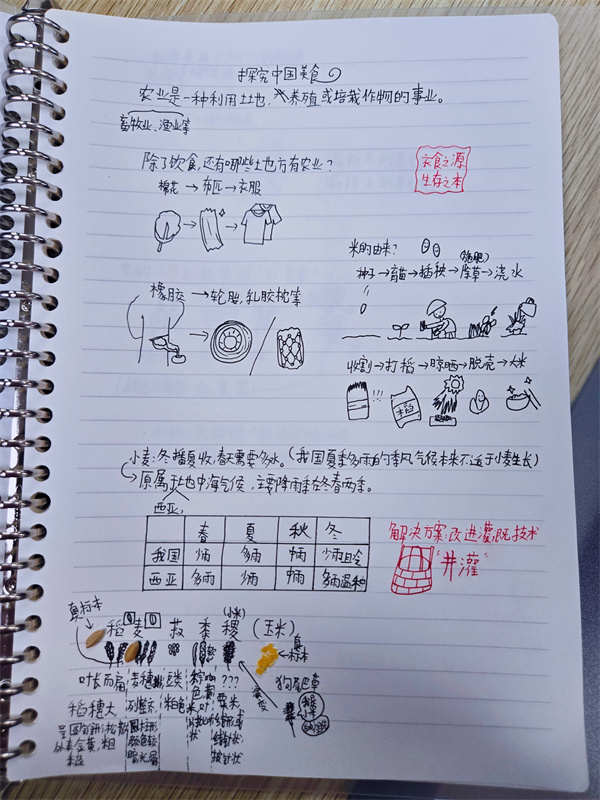 探究中国美食
农业是一种利用土地,养殖或培栽作物的事业。
畜牧业、渔业等
除了饮食,还有哪些土地方有农业?
衣食之源
生存之本
棉花→布匹→衣服
米的由来?
(施肥)
种子→育苗→插秧→除草→浇水
橡胶→轮胎,乳胶枕等
收割→打稻→晾晒→脱壳→大米
稻
小麦:冬播夏收,春天需要多水。(我国夏季多雨的季风气候本来不适于小麦生长)
→原属于地中海气候,主要降雨季在冬春两季。
西亚,
春 夏 秋 冬
我国 少雨 多雨 中雨 少雨且冷
西亚 多雨 少雨 中雨 多雨温和
解决方案:改进灌溉技术
"井灌"
真标本
(小米)
稻 麦 菽 黍 稷 (玉米)
真标本
叶长而扁 麦穗 豆类 ??? 狗尾草
稻穗大 粟米